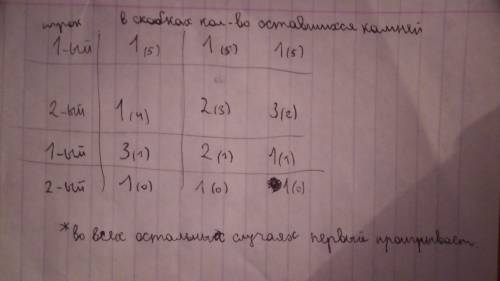 игрок в скобках кол-во оставшихся камней
1-ый 1(5) 1(5) 1(5)
2-ый 1(4) 2(3) 3(2)
1-ый 3(1) 2(1) 1(1)
2-ый 1(0) 1(0) 1(0)
*во всех остальных случаях первый проигрывает